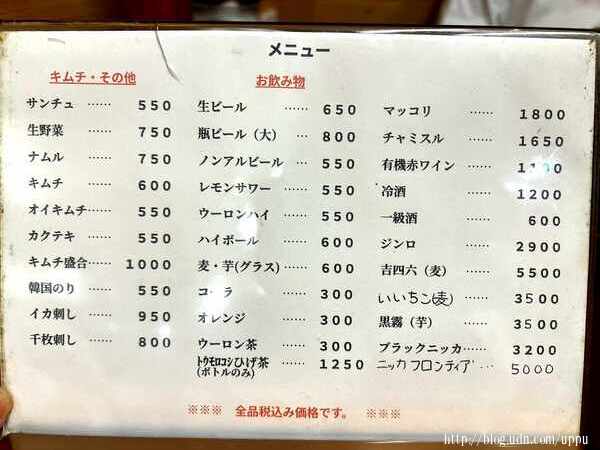 メニュー
キムチ・その他
サンチュ …… 550
生野菜 …… 750
ナムル …… 750
キムチ …… 600
オイキムチ …… 550
カクテキ …… 550
キムチ盛合 …… 1000
韓国のり …… 550
イカ刺し …… 950
千枚刺し …… 800
お飲み物
生ビール …… 650
瓶ビール（大） … 800
ノンアルビール … 550
レモンサワー …… 550
ウーロンハイ …… 550
ハイボール …… 600
麦・芋(グラス) …… 600
コーラ …… 300
オレンジ …… 300
ウーロン茶 …… 300
トウモロコシひげ茶 …… 1250
(ボトルのみ)
マッコリ …… 1800
チャミスル …… 1650
有機赤ワイン …… 1100
冷酒 …… 1200
一級酒 …… 600
ジンロ …… 2900
吉四六（麦） …… 5500
いいちこ(麦) …… 3500
黒霧（芋） …… 3500
ブラックニッカ …… 3200
ニッカ フロンティア … 5000
※※※ 全品税込み価格です。 ※※※
http://blog.udn.com/uppu